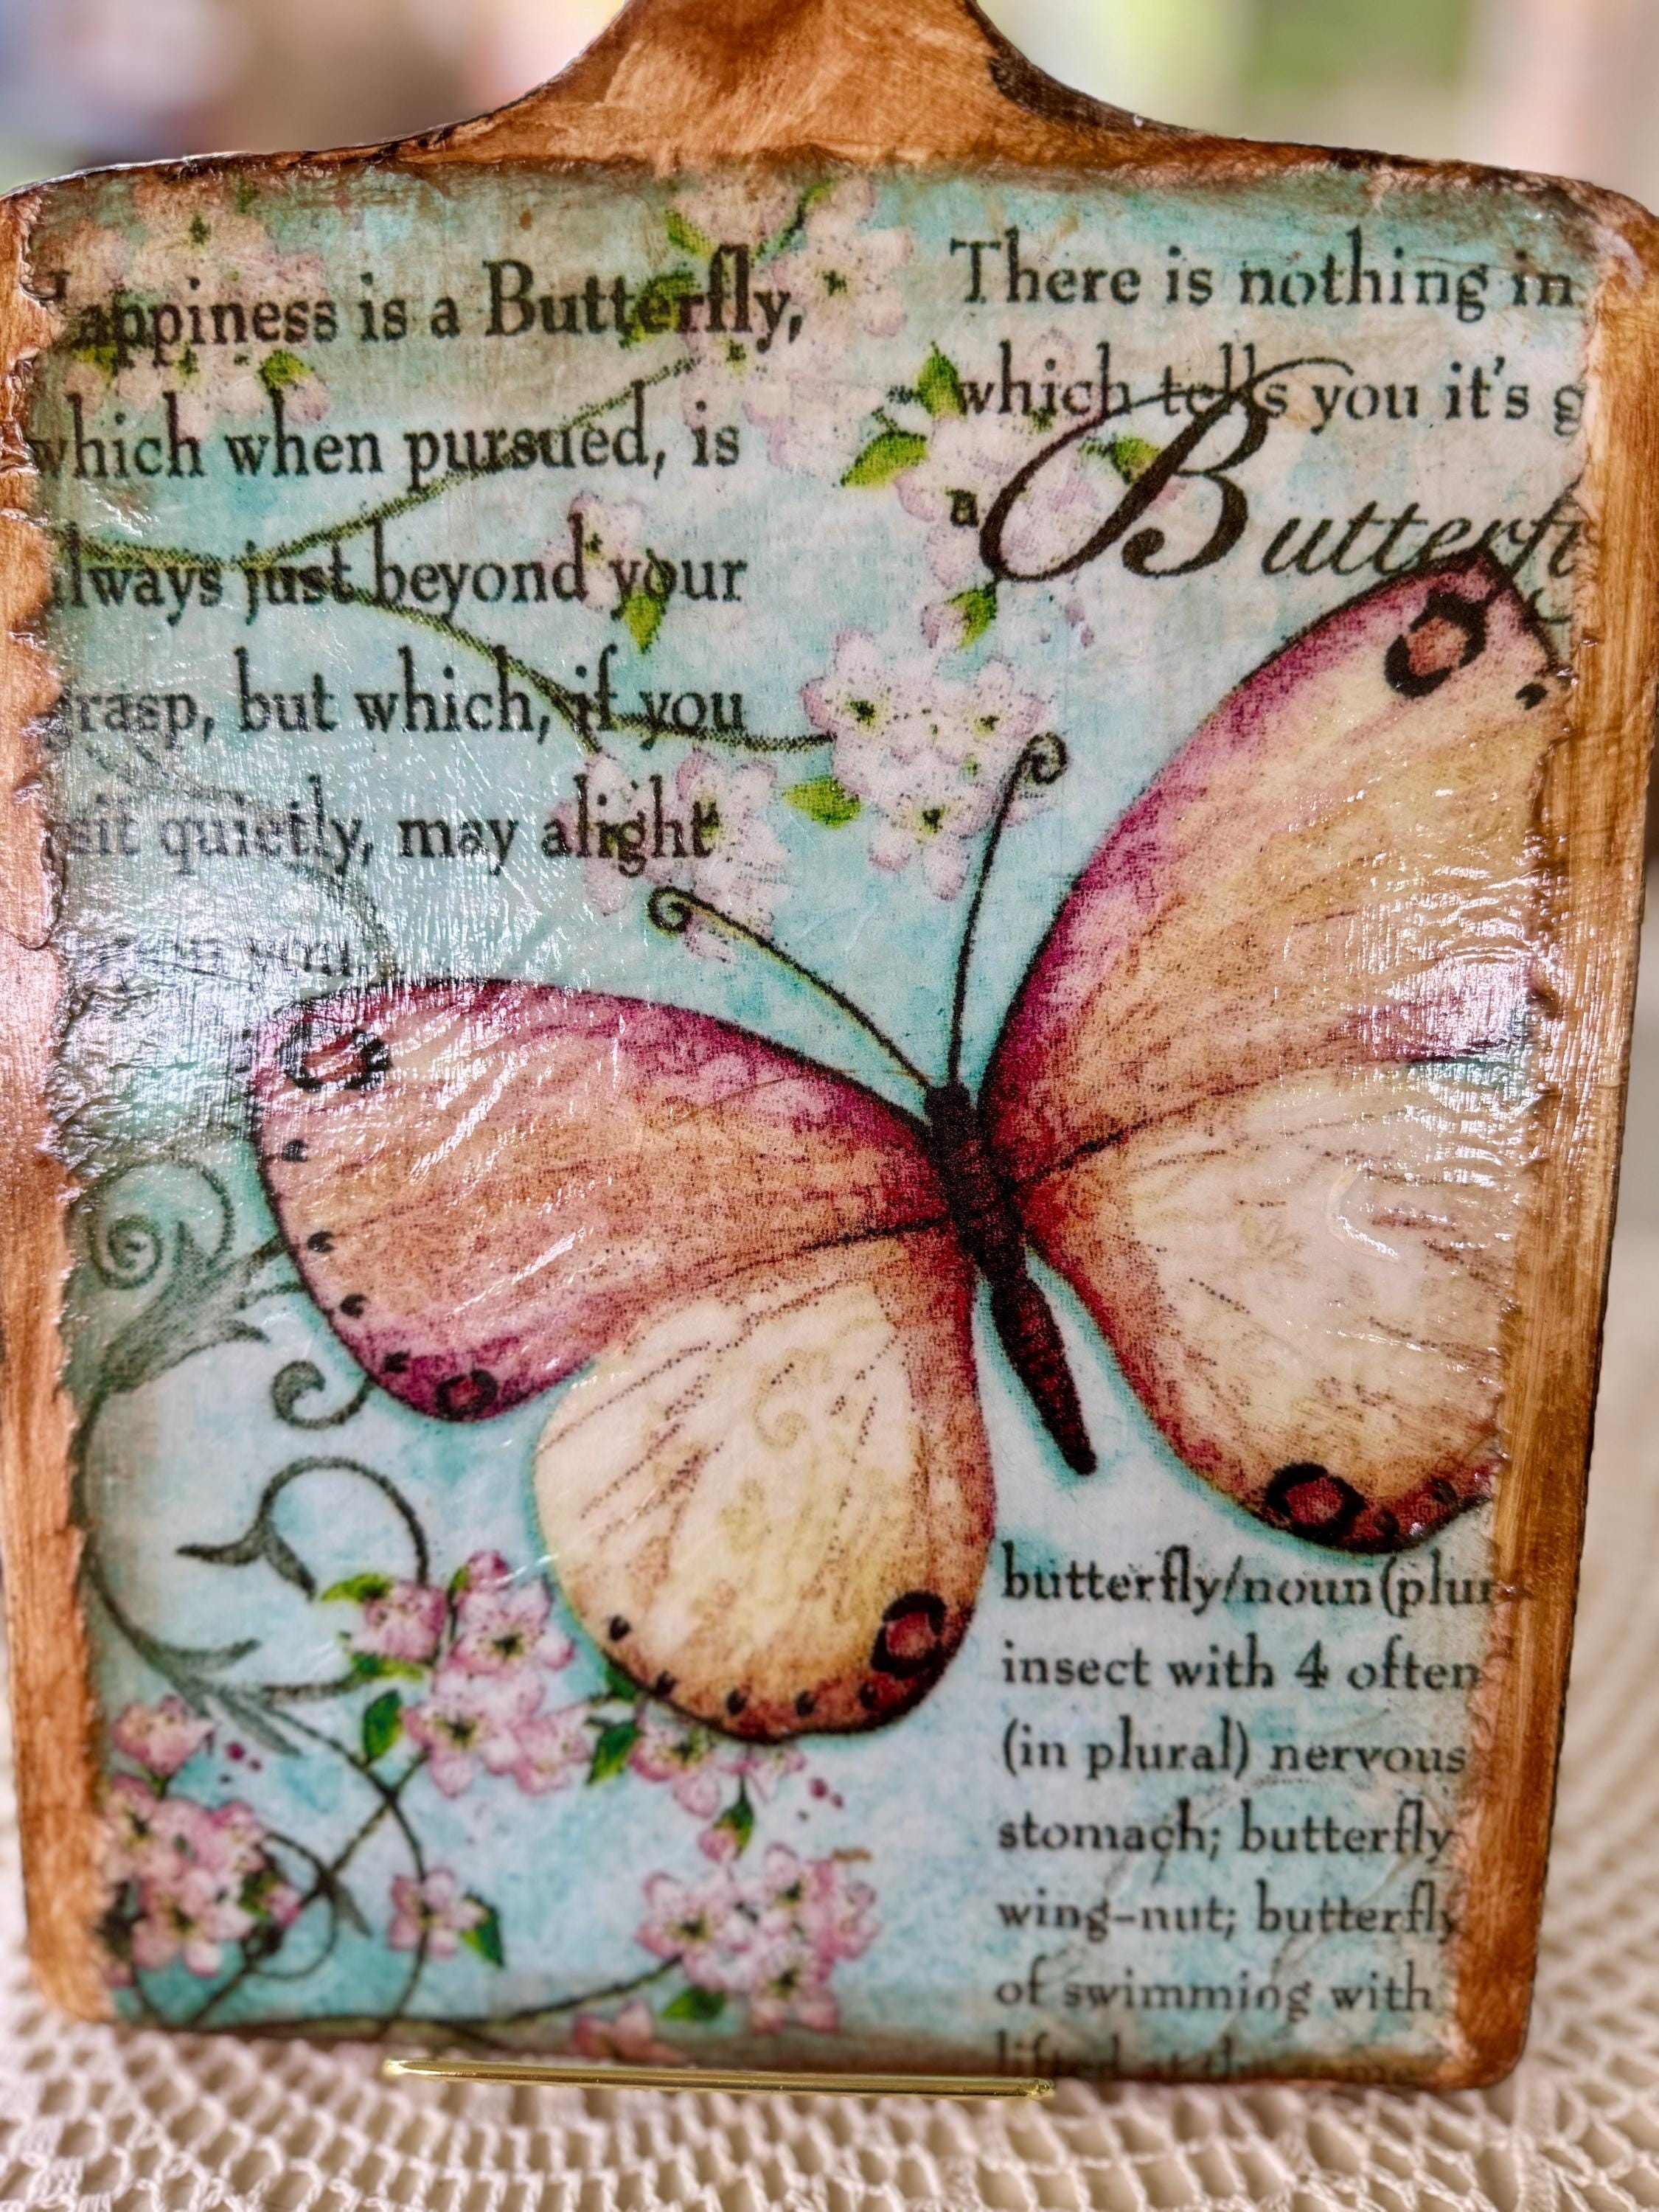 Happiness is a Butterfly,
which when pursued, is
always just beyond your
grasp, but which, if you
sit quietly, may alight
you
There is nothing in
which tells you it's g
a Butterfl
butterfly/noun (plur
insect with 4 often
(in plural) nervous
stomach; butterfly
wing-nut; butterfly
of swimming with